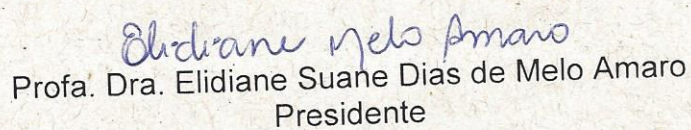 Elidiane Melo Amaro
Profa. Dra. Elidiane Suane Dias de Melo Amaro
Presidente